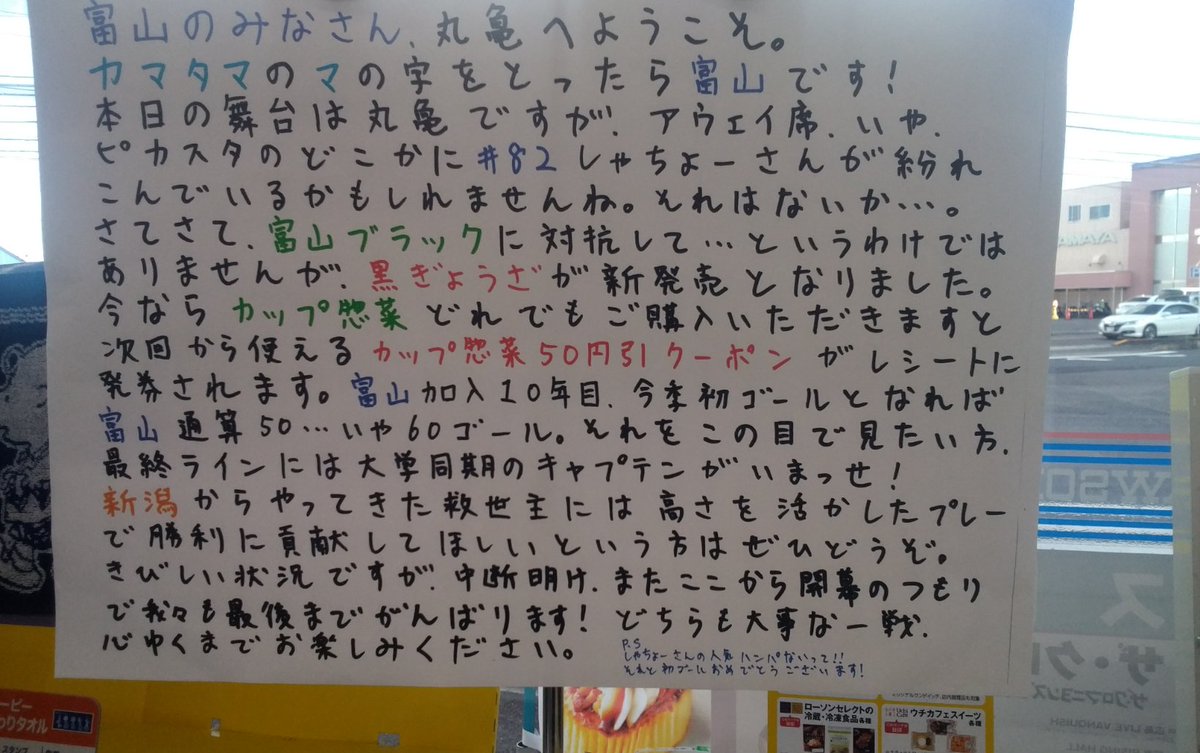 富山のみなさん、丸亀へようこそ。
カマタマのマの字をとったら富山です!
本日の舞台は丸亀ですが、アウェイ席、いや、
ピカスタのどこかに#82しゃちょーさんが紛れ
こんでいるかもしれませんね。それはないか…。
さてさて、富山ブラックに対抗して…というわけでは
ありませんが、黒ぎょうざが新発売となりました。
今ならカップ惣菜どれでもご購入いただきますと
次回から使えるカップ惣菜50円引クーポンがレシートに
発券されます。富山加入10年目、今季初ゴールとなれば
富山通算50…いや60ゴール。それをこの目で見たい方、
最終ラインには大学同期のキャプテンがいまっせ!
新潟からやってきた救世主には高さを活かしたプレー
で勝利に貢献してほしいという方はぜひどうぞ。
きびしい状況ですが、中断明け、またここから開幕のつもり
で我々も最後までがんばります!どちらも大事な一戦、
心ゆくまでお楽しみください。
P.S
しゃちょーさんの人気ハンパないって!!
それと初ゴールおめでとうございます!
AMAYA
WSO
ス
ザ・ク
ザ・クロマニヨンズ
広島 LIVE VANQUISH
ービー
わりタオル
スタンプ
ローソンセレクトの
冷蔵・冷凍食品各種
ウチカフェスイーツ
各種